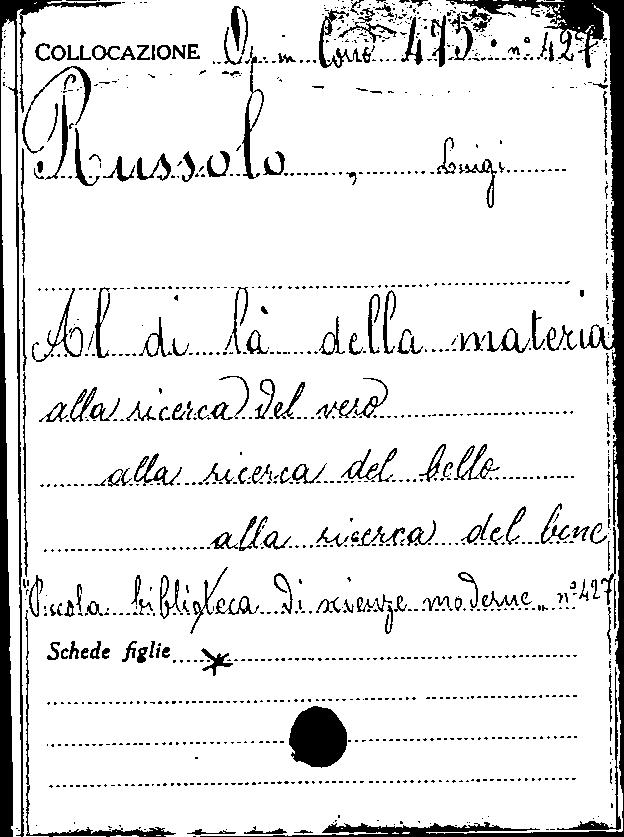 COLLOCAZIONE Op in Corso 475. n° 427
Russolo, Luigi
Al di là della materia
alla ricerca del vero
alla ricerca del bello
alla ricerca del bene
"Piccola biblioteca di scienze moderne" n° 427
Schede figlie